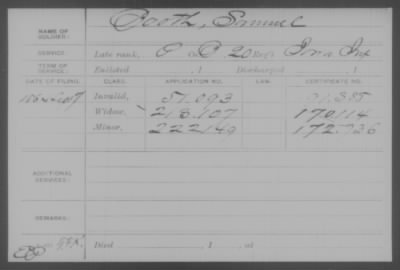 NAME OF SOLDIER: Booth, Samuel
SERVICE: Late rank, Co. 20 Reg't Inf
TERM OF SERVICE: Enlisted , 1 Discharged , 1
DATE OF FILING. CLASS. APPLICATION NO. LAW. CERTIFICATE NO.
Invalid, 51.093
Widow, 218.107 170.114
Minor, 222.149
ADDITIONAL SERVICES:
REMARKS:
Died , 1 , at